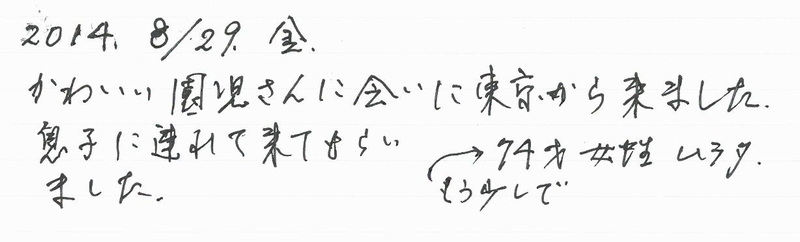 2014. 8/29. 金.
かわいい園児さんに会いに東京から来ました.
息子に連れて来てもらい
ました.
→74才 女性
もう少しで